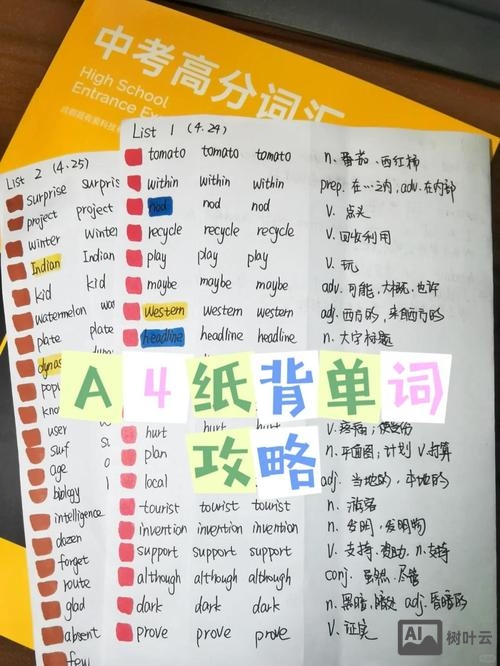 中考高分词汇
High School
Entrance Ex
List 1 (4.24)
tomato tomato tomato n. 番茄、西红柿
within within within prep. 在…之内, adv. 在内部
nod nod nod v. 点头
recycle recycle recycle v. 回收利用
play play play v. 玩
maybe maybe maybe adv. 可能, 大概, 也许
western western western adj. 西方的, 来自西方的
headline headline headline n. 大字标题
hurt hurt hurt v. 疼痛;使受伤
plan plan plan n. 平面图;计划 v. 打算
local local local adj. 当地的, 本地的
tourist tourist tourist n. 游客
invention invention invention n. 发明, 发明物
support support support v. 支持、资助, n. 支持
although although although conj. 虽然, 尽管
dark dark dark n. 黑暗, 暗处 adj. 昏暗的
prove prove prove v. 证实
List 2 (4.25)
surprise surpris
project project
winter winter
Indian Indian
kid kid
watermelon wa
plate plate
dynas
popu
know
user
surf
age
biology
intelligence
dozen
forget
route
glad
absent
few
A4纸背单词
攻略
AI 树叶云